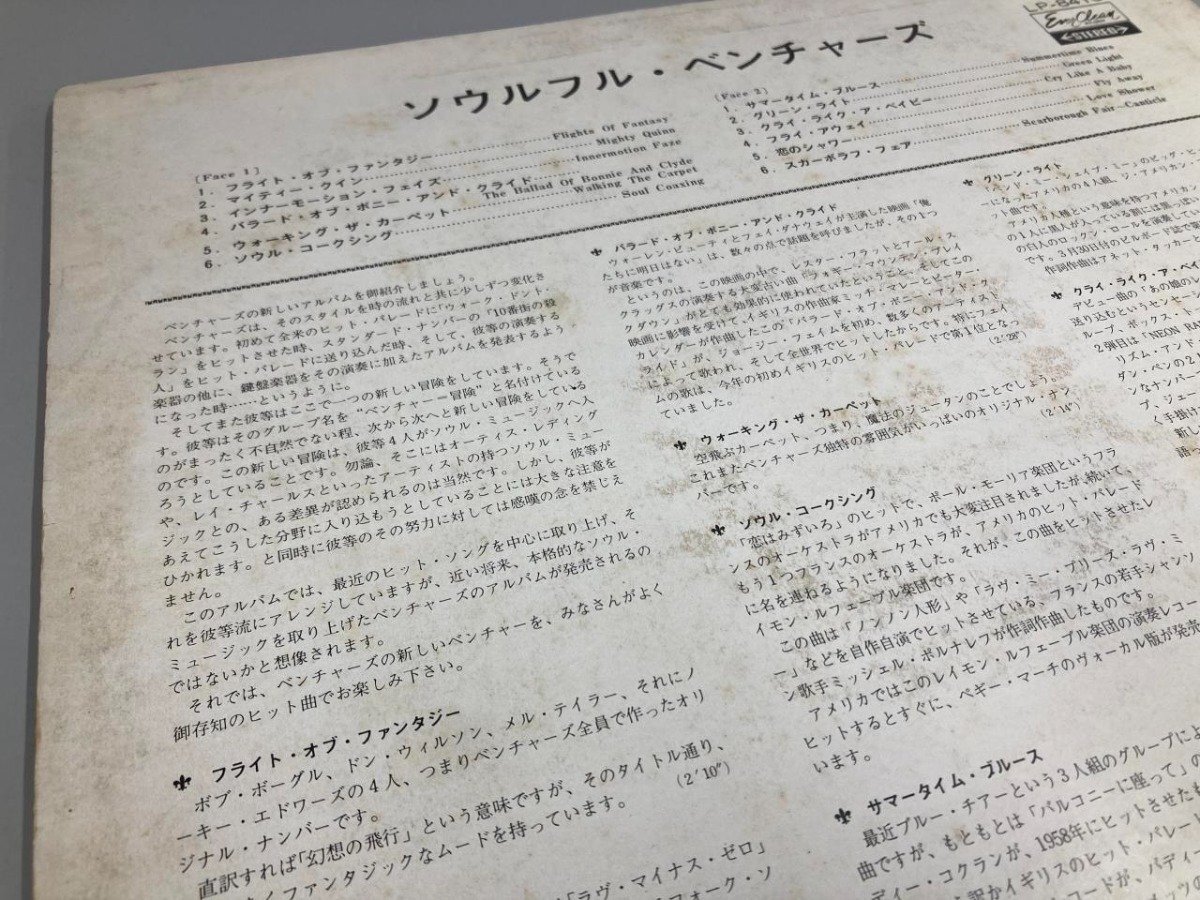 ソウルフル・ベンチャーズ
Evry Clean
STEREO
〔Face 1〕
1. フライト・オブ・ファンタジー Flights Of Fantasy
2. マイティー・クイン Mighty Quinn
3. インナーモーション・フェイズ Innermotion Faze
4. バラード・オブ・ボニー・アンド・クライド The Ballad Of Bonnie And Clyde
5. ウォーキング・ザ・カーペット Walking The Carpet
6. ソウル・コークシング Soul Coaxing
〔Face 2〕
1. サマータイム・ブルース Summertime Blues
2. グリーン・ライト Green Light
3. クライ・ライク・ア・ベイビー Cry Like A Baby
4. フライ・アウェイ Fly Away
5. 恋のシャワー Love Shower
6. スカーボラフ・フェア Scarborough Fair—Canticle
ベンチャーズの新しいアルバムを御紹介しましょう。
ベンチャーズは、そのスタイルを時の流れと共に少しずつ変化さ
せています。初めて全米のヒット・パレードに「ウォーク・ドント・
ラン」をヒットさせた時、スタンダード・ナンバーの「10番街の殺
人」をヒット・パレードに送り込んだ時、そして、彼等の演奏する
楽器の他に、鍵盤楽器をその演奏に加えたアルバムを発表するよう
になった時……というように。
そしてまた彼等はここで一つの新しい冒険をしています。そうで
す。彼等はそのグループ名を“ベンチャー＝冒険”と名付けている
のがまったく不自然でない程、次から次へと新しい冒険をしている
のです。この新しい冒険は、彼等4人がソウル・ミュージックへ入
ろうとしていることです。勿論、そこにはオーティス・レディング
や、レイ・チャールスといったアーティストの持つソウル・ミュー
ジックとの、ある差異が認められるのは当然です。しかし、彼等が
あえてこうした分野に入り込もうとしていることには大きな注意を
ひかれます。と同時に彼等のその努力に対しては感嘆の念を禁じえ
ません。
このアルバムでは、最近のヒット・ソングを中心に取り上げ、そ
れを彼等流にアレンジしていますが、近い将来、本格的なソウル・
ミュージックを取り上げたベンチャーズのアルバムが発売されるの
ではないかと想像されます。
それでは、ベンチャーズの新しいベンチャーを、みなさんがよく
御存知のヒット曲でお楽しみ下さい。
フライト・オブ・ファンタジー
ボブ・ボーグル、ドン・ウィルソン、メル・テイラー、それにノ
ーキー・エドワーズの4人、つまりベンチャーズ全員で作ったオリ
ジナル・ナンバーです。
直訳すれば「幻想の飛行」という意味ですが、そのタイトル通り、
ファンタジックなムードを持っています。 (2′10″)
「ラヴ・マイナス・ゼロ」
フォーク・ソ
バラード・オブ・ボニー・アンド・クライド
ウォーレン・ビューティとフェイ・ダナウェイが主演した映画「俺
たちに明日はない」は、数々の点で話題を呼びましたが、その1つ
が音楽です。
というのは、この映画の中で、レスター・フラットとアール・ス
クラッグスの演奏する大変古い曲「フォギー・マウンテン・ブレイ
クダウン」がとても効果的に使われていたということ、そしてこの
映画に影響を受けて、イギリスの作曲家ミッチ・マレーとピーター・
カレンダーが作曲したこの「バラード・オブ・ボニー・アンド・ク
ライド」が、ジョージー・フェイムを初め、数多くのアーティスト
によって歌われ、そして全世界でヒットしたからです。特にフェイ
ムの歌は、今年の初めイギリスのヒット・パレードで第1位となっ
ていました。 (2′28″)
ウォーキング・ザ・カーペット
空飛ぶカーペット、つまり、魔法のジュータンのことでしょう。
これまたベンチャーズ独特の雰囲気がいっぱいのオリジナル・ナン
バーです。 (2′14″)
ソウル・コークシング
「恋はみずいろ」のヒットで、ポール・モーリア楽団というフラ
ンスのオーケストラがアメリカでも大変注目されましたが、続いて、
もう1つフランスのオーケストラが、アメリカのヒット・パレード
に名を連ねるようになりました。それが、この曲をヒットさせたレ
イモン・ルフェーブル楽団です。
この曲は「ノンノン人形」や「ラヴ・ミー・プリーズ・ラヴ・ミ
ー」などを自作自演でヒットさせている、フランスの若手シャンソ
ン歌手ミッシェル・ポルナレフが作詞作曲したものです。
アメリカではこのレイモン・ルフェーブル楽団の演奏レコー
ヒットするとすぐに、ペギー・マーチのヴォーカル版が発売
います。
サマータイム・ブルース
最近ブルー・チアーという3人組のグループによ
曲ですが、もともとは「バルコニーに座って」の
ディー・コクランが、1958年にヒットさせたも
訳かイギリスのヒット・パレー
コードが、バディー
グリーン・ライト
ンド・ミー・シェイプ・ミー」のビッグ・ヒ
ーになったアメリカの4人組、ジ・アメリカン
ット曲です。
アメリカ人種という意味を持つアメリカン
の1人に黒人が入っている割には黒っぽ
の白人のロックン・ロールを演奏してい
です。3月30日付のビルボード誌で第
作詞作曲はアネット・タッカー
クライ・ライク・ア・ベイ
デビュー曲の「あの娘のレ
送り込むというセンセー
ループ、ボックス・ト
2弾目は「NEON R
リズム・アンド・
ダン・ペンの2
ンなナンバー
プ、ジュー
く手掛け
語っ